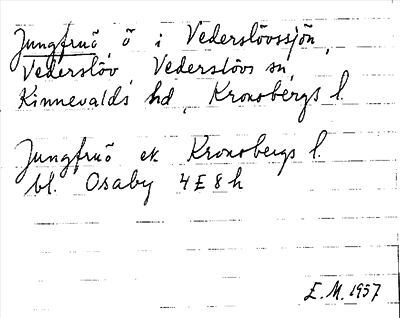 Jungfruö, ö i Vederslövssjön,
Vederslöv, Vederslövs sn,
Kinnevalds hd, Kronobergs l.
Jungfruö ek Kronobergs l.
bl. Osaby 4E8h
E.M. 1957